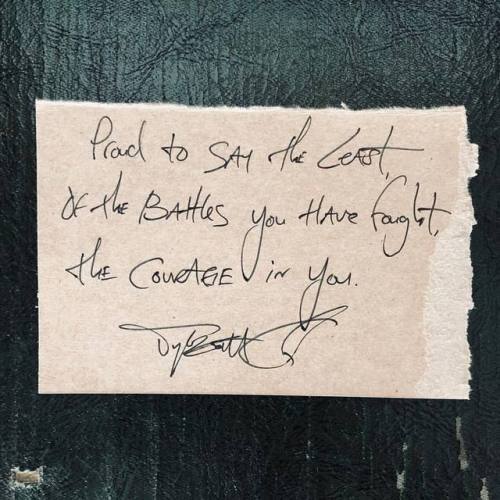 Proud to SAY the Least,
Of the BAttles you HAve fought,
the COURAGE in you.